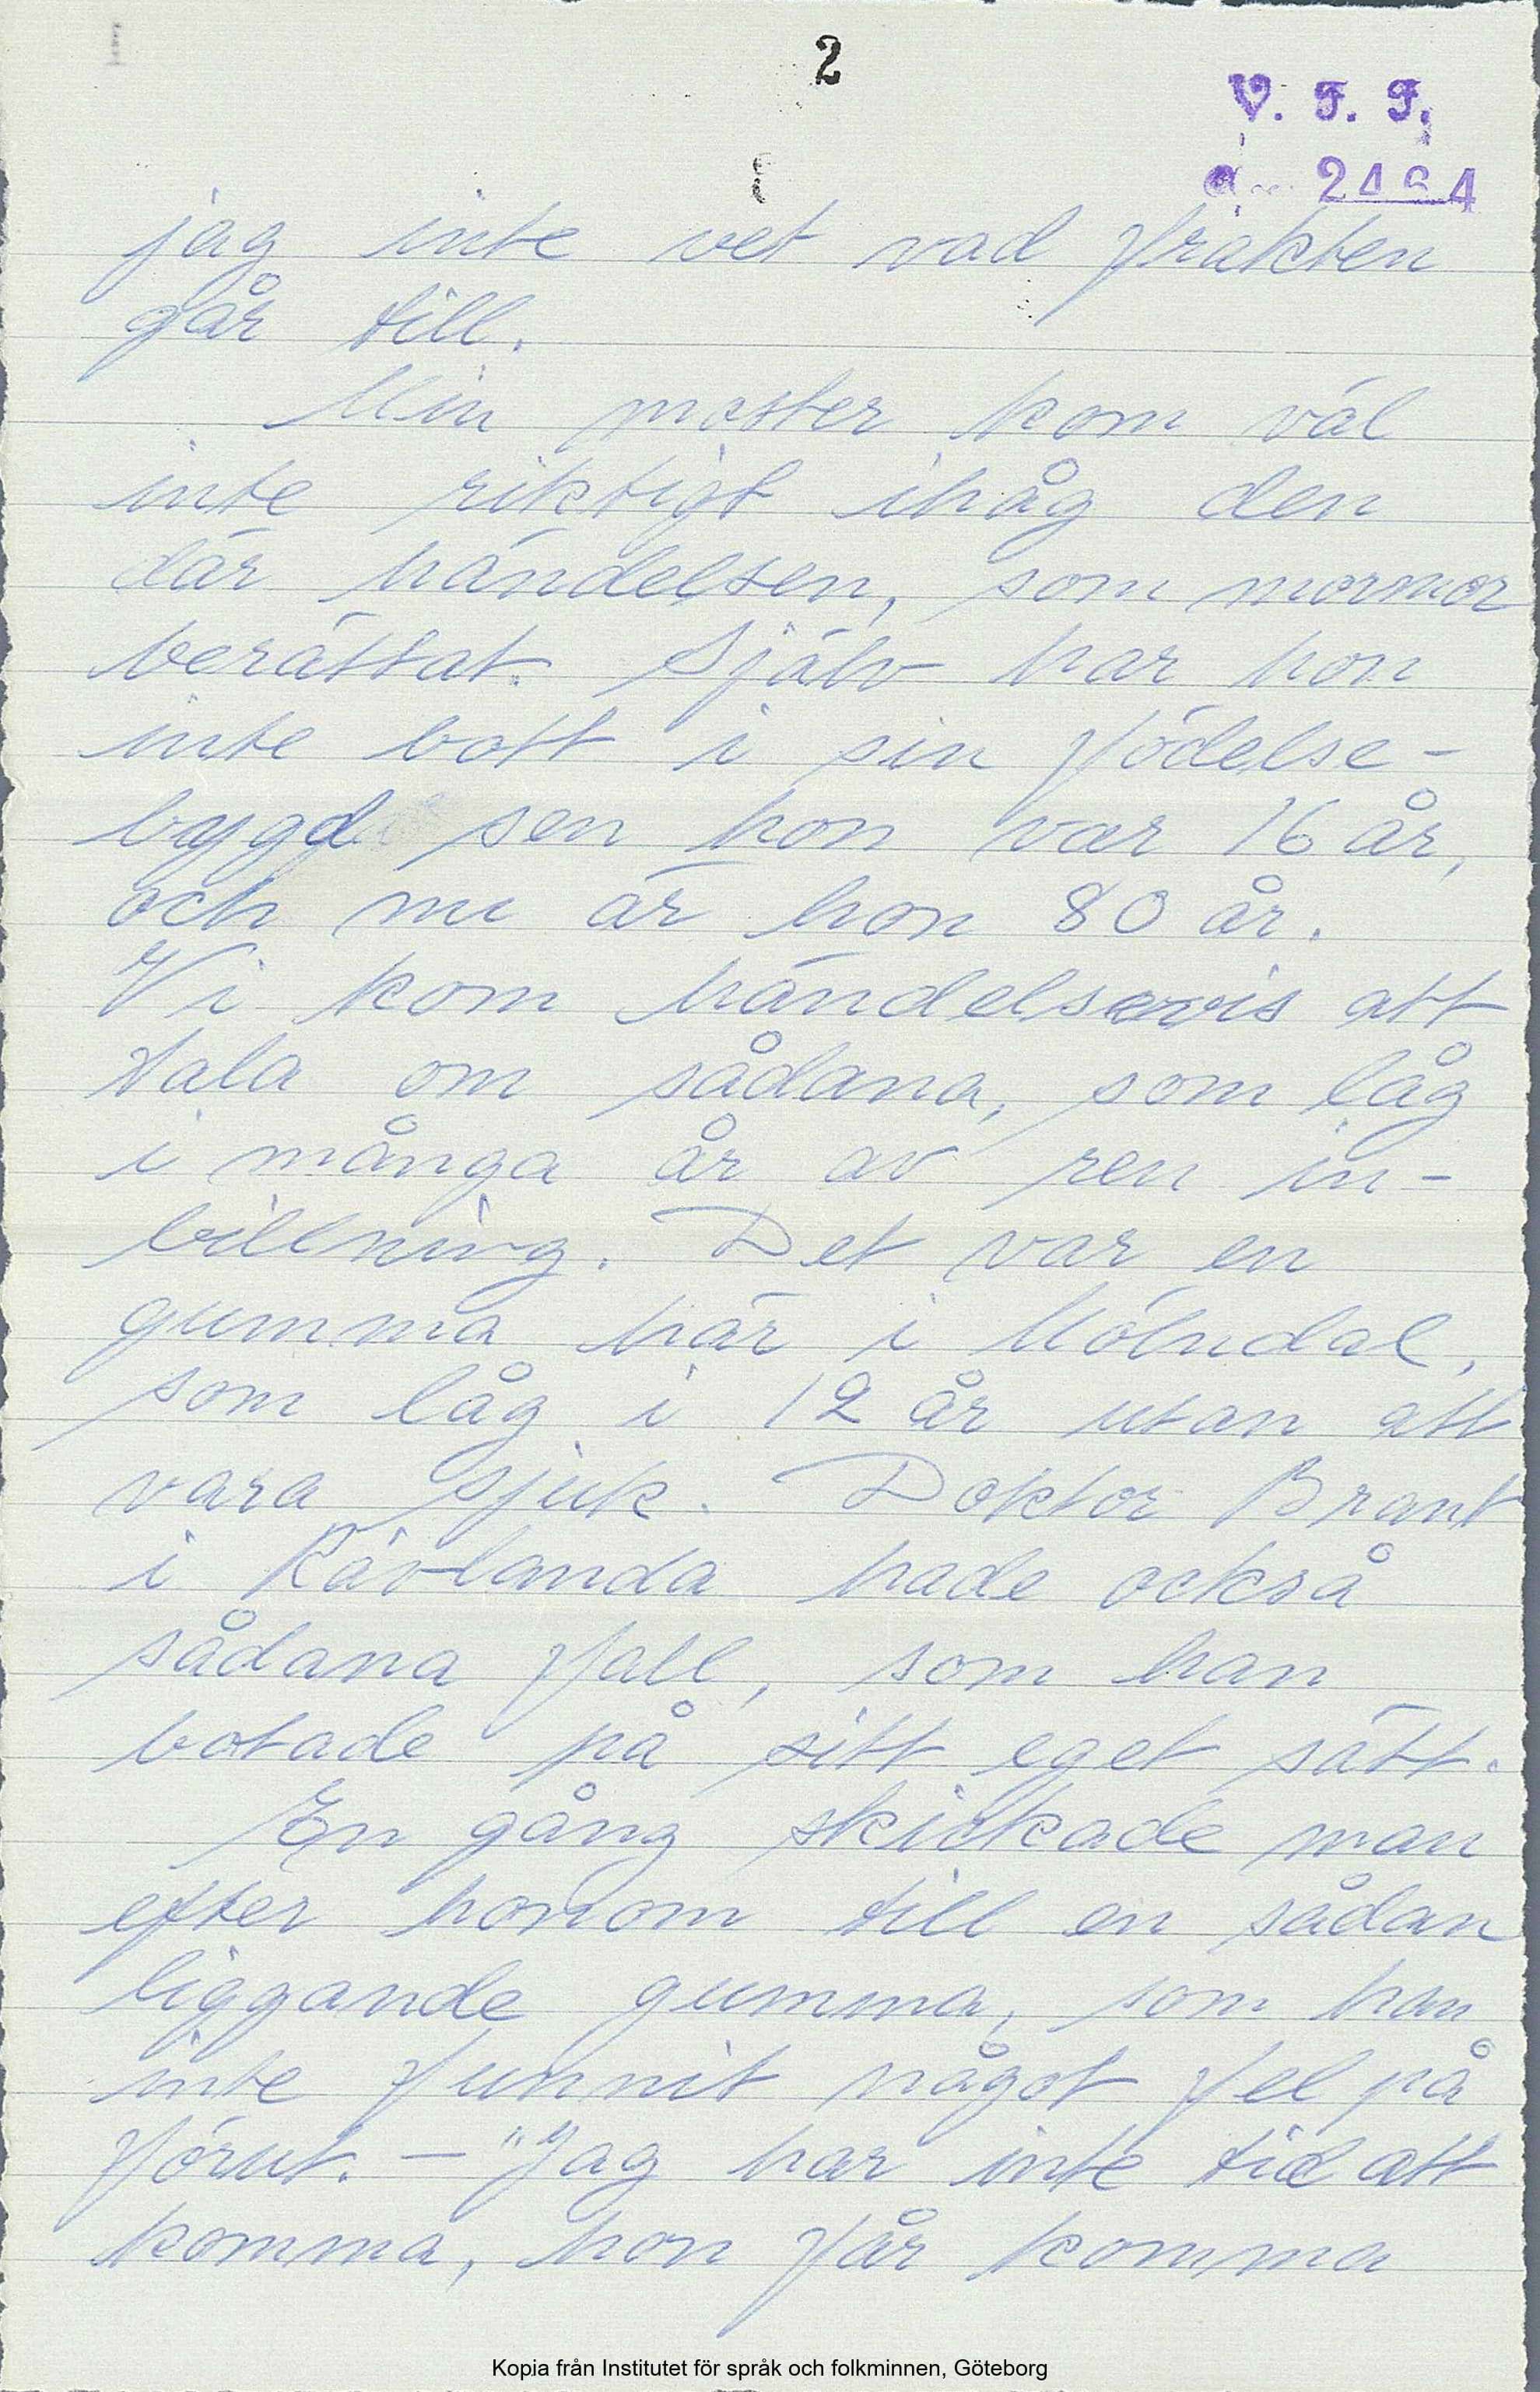 2
V. F. F.
jag inte vet vad frakten
går till.
Min moster kom väl
inte riktigt ihåg den
där händelsen, som mormor
berättat. Själv har hon
inte bott i sin födelse-
bygd sen hon var 16 år,
och nu är hon 80 år.
Vi kom händelsevis att
tala om sådana, som låg
i många år av ren in-
billning. Det var en
gumma här i Mölndal,
som låg i 12 år utan att
vara sjuk. Doktor Brant
i Rävlanda hade också
sådana fall, som han
botade på sitt eget sätt.
En gång skickade man
efter honom till en sådan
liggande gumma, som han
inte funnit något fel på
förut. – "Jag har inte tid att
komma, hon får komma
Kopia från Institutet för språk och folkminnen, Göteborg